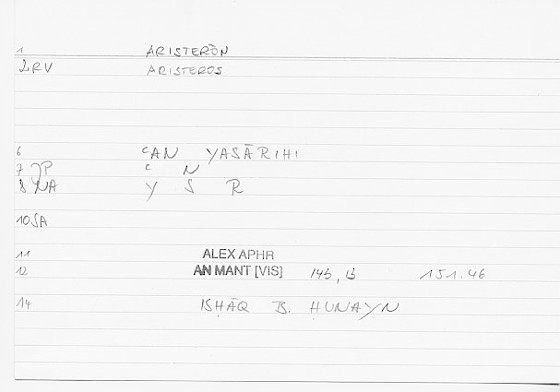 1 ARISTERÒN
2RV ARISTEROS
6 ʿAN YASĀRIHI
7 JP ʿ N
8 NA Y S R
10 SA
11 ALEX APHR
12 AN MANT [VIS] 145, 13 151.46
14 ISḤĀQ B. ḤUNAYN